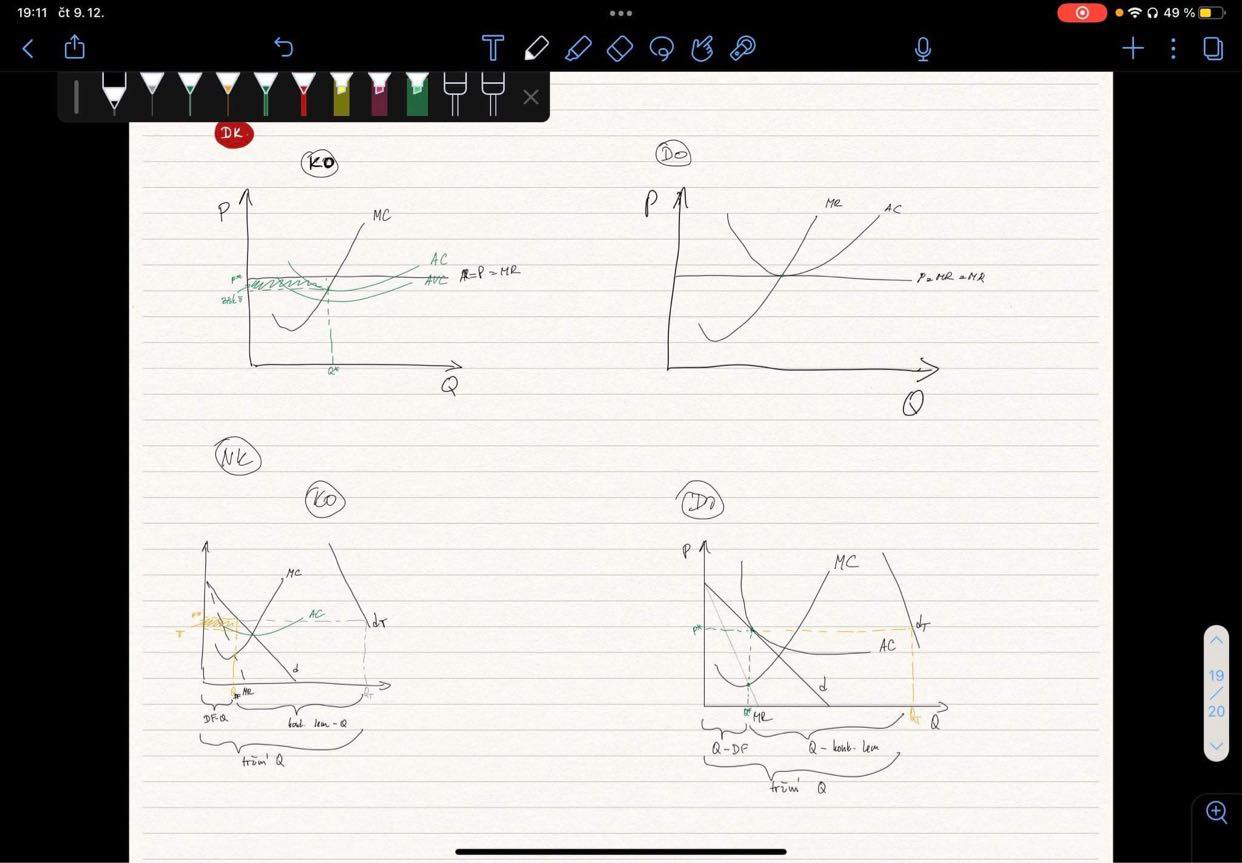 19:11 čt 9.12.
49 %
T
DK
KO
P
MC
AC
AVC
=P=MR
P*
Q*
Q
DO
P
MR
AC
P=MR=MR
Q
NK
KO
MC
AC
dT
P*
T
d
MR
QT
DF-Q
konk. lem - Q
tržní Q
DO
P
MC
dT
P*
AC
d
Q*
MR
QT
Q
Q-DF
Q-konk. lem
tržní Q
19
/
20